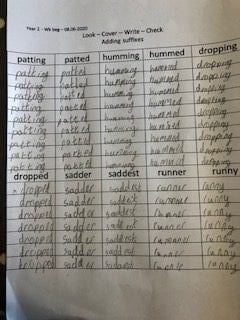 Year 2 - Wk beg - 08.06.2020
Look – Cover – Write – Check
Adding suffixes
patting patted humming hummed dropping
patting patted humming hummed dropping
patting patted humming hummed dropping
patting patted humming hummed dropping
patting patted humming hummed dropping
patting patted humming hummed dropping
patting patted humming hummed dropping
patting patted humming hummed dropping
patting patted humming hummed dropping
dropped sadder saddest runner runny
dropped sadder saddest runner runny
dropped sadder saddest runner runny
dropped sadder saddest runner runny
dropped sadder saddest runner runny
dropped sadder saddest runner runny
dropped sadder saddest runner runny
dropped sadder saddest runner runny